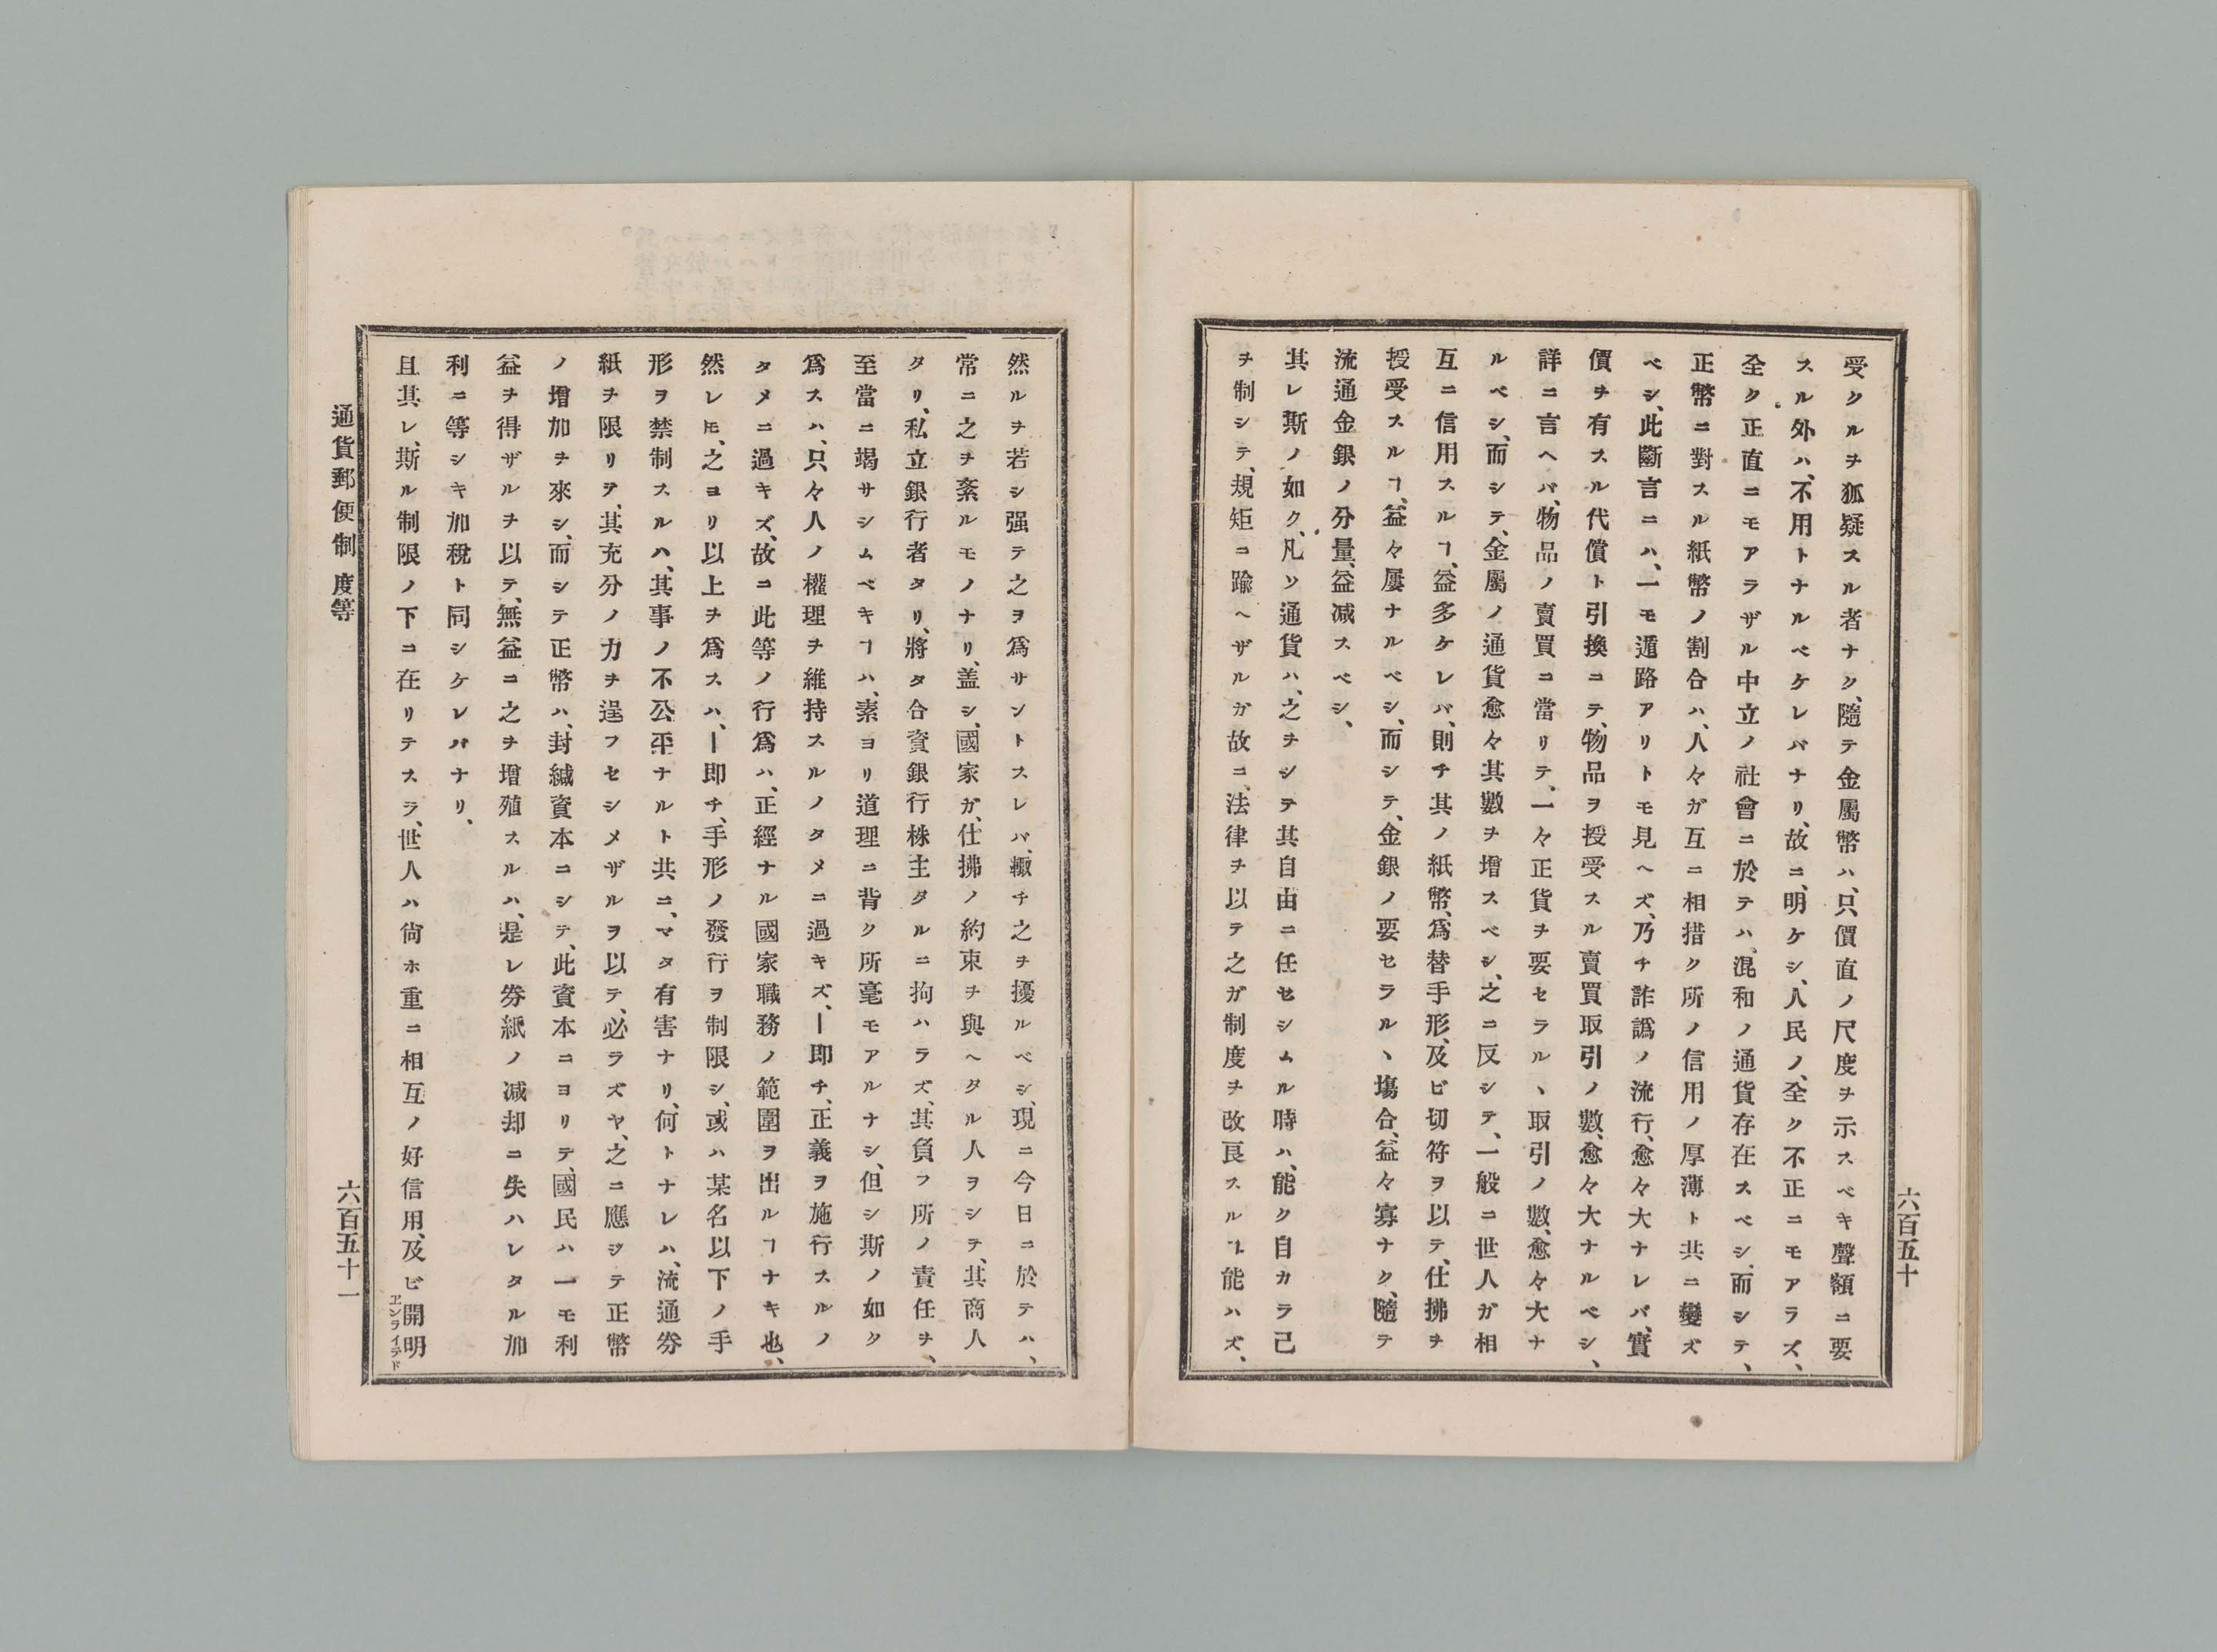 受クルヲ狐疑スル者ナク、隨テ金屬幣ハ、只價直ノ尺度ヲ示スベキ聲額ニ要
スル外ハ、不用トナルベケレバナリ、故ニ、明ケシ、人民ノ、全ク不正ニモアラズ、
全ク正直ニモアラザル中立ノ社會ニ於テハ、混和ノ通貨存在スベシ、而シテ、
正幣ニ對スル紙幣ノ割合ハ、人々ガ互ニ相措ク所ノ信用ノ厚薄ト共ニ變ズ
ベシ、此斷言ニハ、一モ遁路アリトモ見ヘズ、乃チ詐譌ノ流行、愈々大ナレバ、實
價ヲ有スル代償ト引換ニテ、物品ヲ授受スル賣買取引ノ數、愈々大ナルベシ、
詳ニ言ヘバ、物品ノ賣買ニ當リテ、一々正貨ヲ要セラルヽ取引ノ數、愈々大ナ
ルベシ、而シテ、金屬ノ通貨愈々其數ヲ增スベシ、之ニ反シテ、一般ニ世人ガ相
互ニ信用スルヿ、益多ケレバ、則チ其ノ紙幣、爲替手形、及ビ切符ヲ以テ、仕拂ヲ
授受スルヿ、益々屢ナルベシ、而シテ、金銀ノ要セラルヽ塲合、益々寡ナク、隨テ
流通金銀ノ分量、益減スベシ、
其レ斯ノ如ク、凡ソ通貨ハ、之ヲシテ其自由ニ任セシムル時ハ、能ク自カラ己
ヲ制シテ、規矩ニ踰ヘザルガ故ニ、法律ヲ以テ之ガ制度ヲ改良スルヿ能ハズ、
六百五十
然ルヲ若シ强テ之ヲ爲サントスレバ、輙チ之ヲ擾ルベシ、現ニ今日ニ於テハ、
常ニ之ヲ紊ルモノナリ、盖シ、國家ガ、仕拂ノ約束ヲ與ヘタル人ヲシテ、其商人
タリ、私立銀行者タリ、將タ合資銀行株主タルニ拘ハラズ、其負フ所ノ責任ヲ、
至當ニ竭サシムベキヿハ、素ヨリ道理ニ背ク所毫モアルナシ、但シ斯ノ如ク
爲スハ、只々人ノ權理ヲ維持スルノタメニ過キズ、―即チ、正義ヲ施行スルノ
タメニ過キズ、故ニ此等ノ行爲ハ、正經ナル國家職務ノ範圍ヲ出ルヿナキ也、
然レ𪜈、之ヨリ以上ヲ爲スハ、―即チ、手形ノ發行ヲ制限シ、或ハ某名以下ノ手
形ヲ禁制スルハ、其事ノ不公平ナルト共ニ、マタ有害ナリ、何トナレハ、流通劵
紙ヲ限リテ、其充分ノ力ヲ逞フセシメザルヲ以テ、必ラズヤ、之ニ應ジテ正幣
ノ增加ヲ來シ、而シテ正幣ハ、封緘資本ニシテ、此資本ニヨリテ、國民ハ一モ利
益ヲ得ザルヲ以テ、無益ニ之ヲ增殖スルハ、是レ劵紙ノ减却ニ失ハレタル加
利ニ等シキ加稅ト同シケレバナリ、
且其レ、斯ル制限ノ下ニ在リテスラ、世人ハ尙ホ重ニ相互ノ好信用、及ビ開明
ヱンライテド
通貨郵便制度等
六百五十一